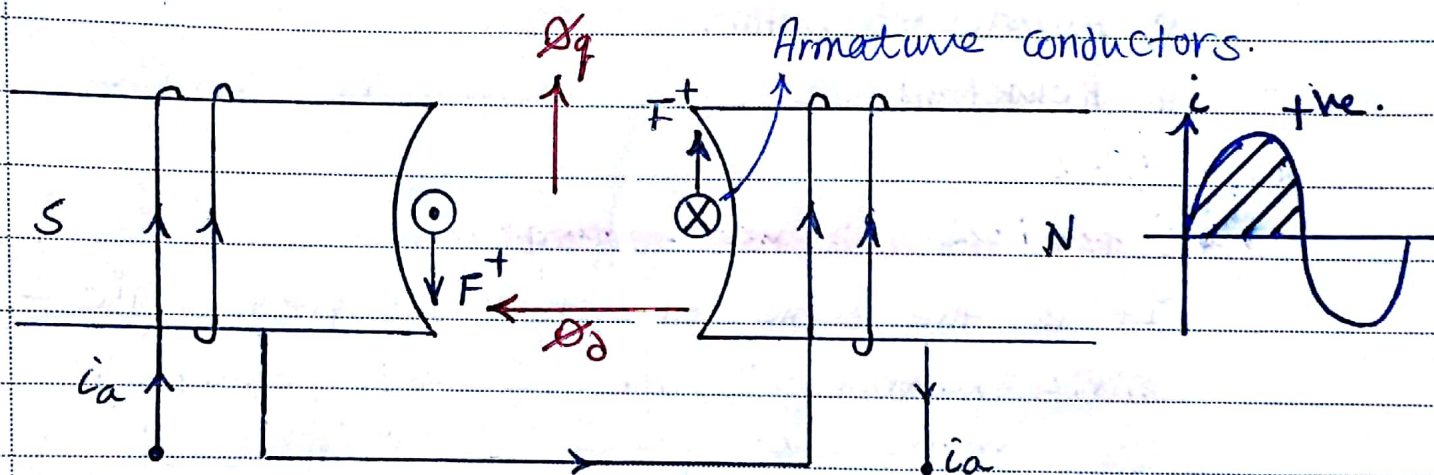 Øq
Armature conductors.
F⁺
i
+ve.
S
N
F⁺
Ød
ia
ia